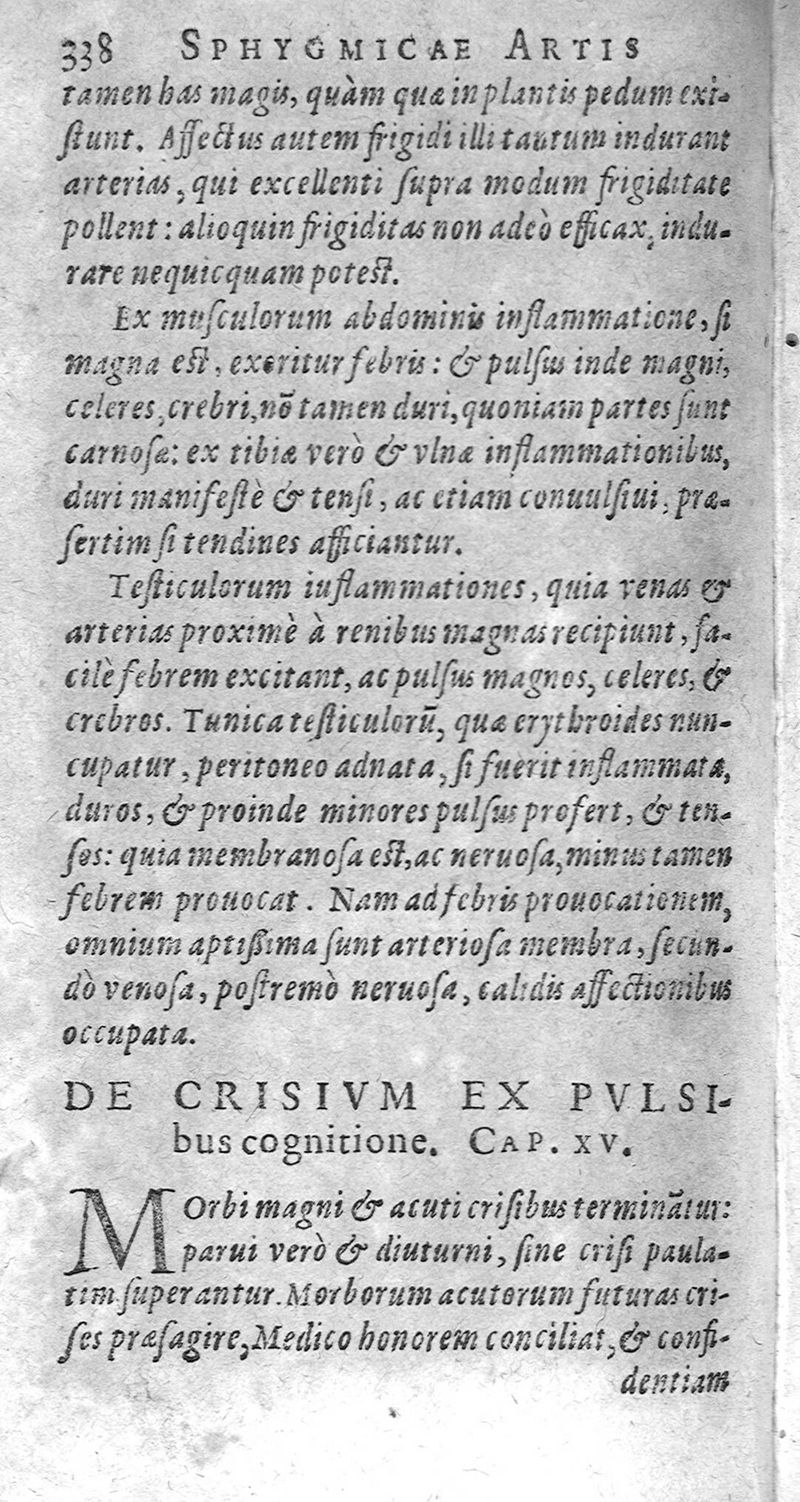 338 SPHYGMICAE ARTIS
tamen has magis, quàm quæ in plantis pedum exi-
ſtunt. Affectus autem frigidi illi tantum indurant
arterias, qui excellenti ſupra modum frigiditate
pollent: alioquin frigiditas non adeò efficax, indu-
rare nequicquam poteſt.
Ex muſculorum abdominis inflammatione, ſi
magna eſt, exoritur febris: & pulſus inde magni,
celeres, crebri, nō tamen duri, quoniam partes ſunt
carnoſæ: ex tibiæ verò & vlnæ inflammationibus,
duri manifeſtè & tenſi, ac etiam conuulſiui, præ-
ſertim ſi tendines afficiantur.
Teſticulorum iuflammationes, quia venas &
arterias proximè à renibus magnas recipiunt, fa-
cilè febrem excitant, ac pulſus magnos, celeres, &
crebros. Tunica teſticulorū, quæ erythroides nun-
cupatur, peritoneo adnata, ſi fuerit inflammata,
duros, & proinde minores pulſus profert, & ten-
ſos: quia membranoſa eſt, ac neruoſa, minus tamen
febrem prouocat. Nam ad febris prouocationem,
omnium aptiſſima ſunt arterioſa membra, ſecun-
dò venoſa, poſtremò neruoſa, calidis affectionibus
occupata.
DE CRISIVM EX PVLSI-
bus cognitione. CAP. XV.
MOrbi magni & acuti criſibus terminātur:
parui verò & diuturni, ſine criſi paula-
tim ſuperantur. Morborum acutorum futuras cri-
ſes præſagire, Medico honorem conciliat, & confi-
dentiam